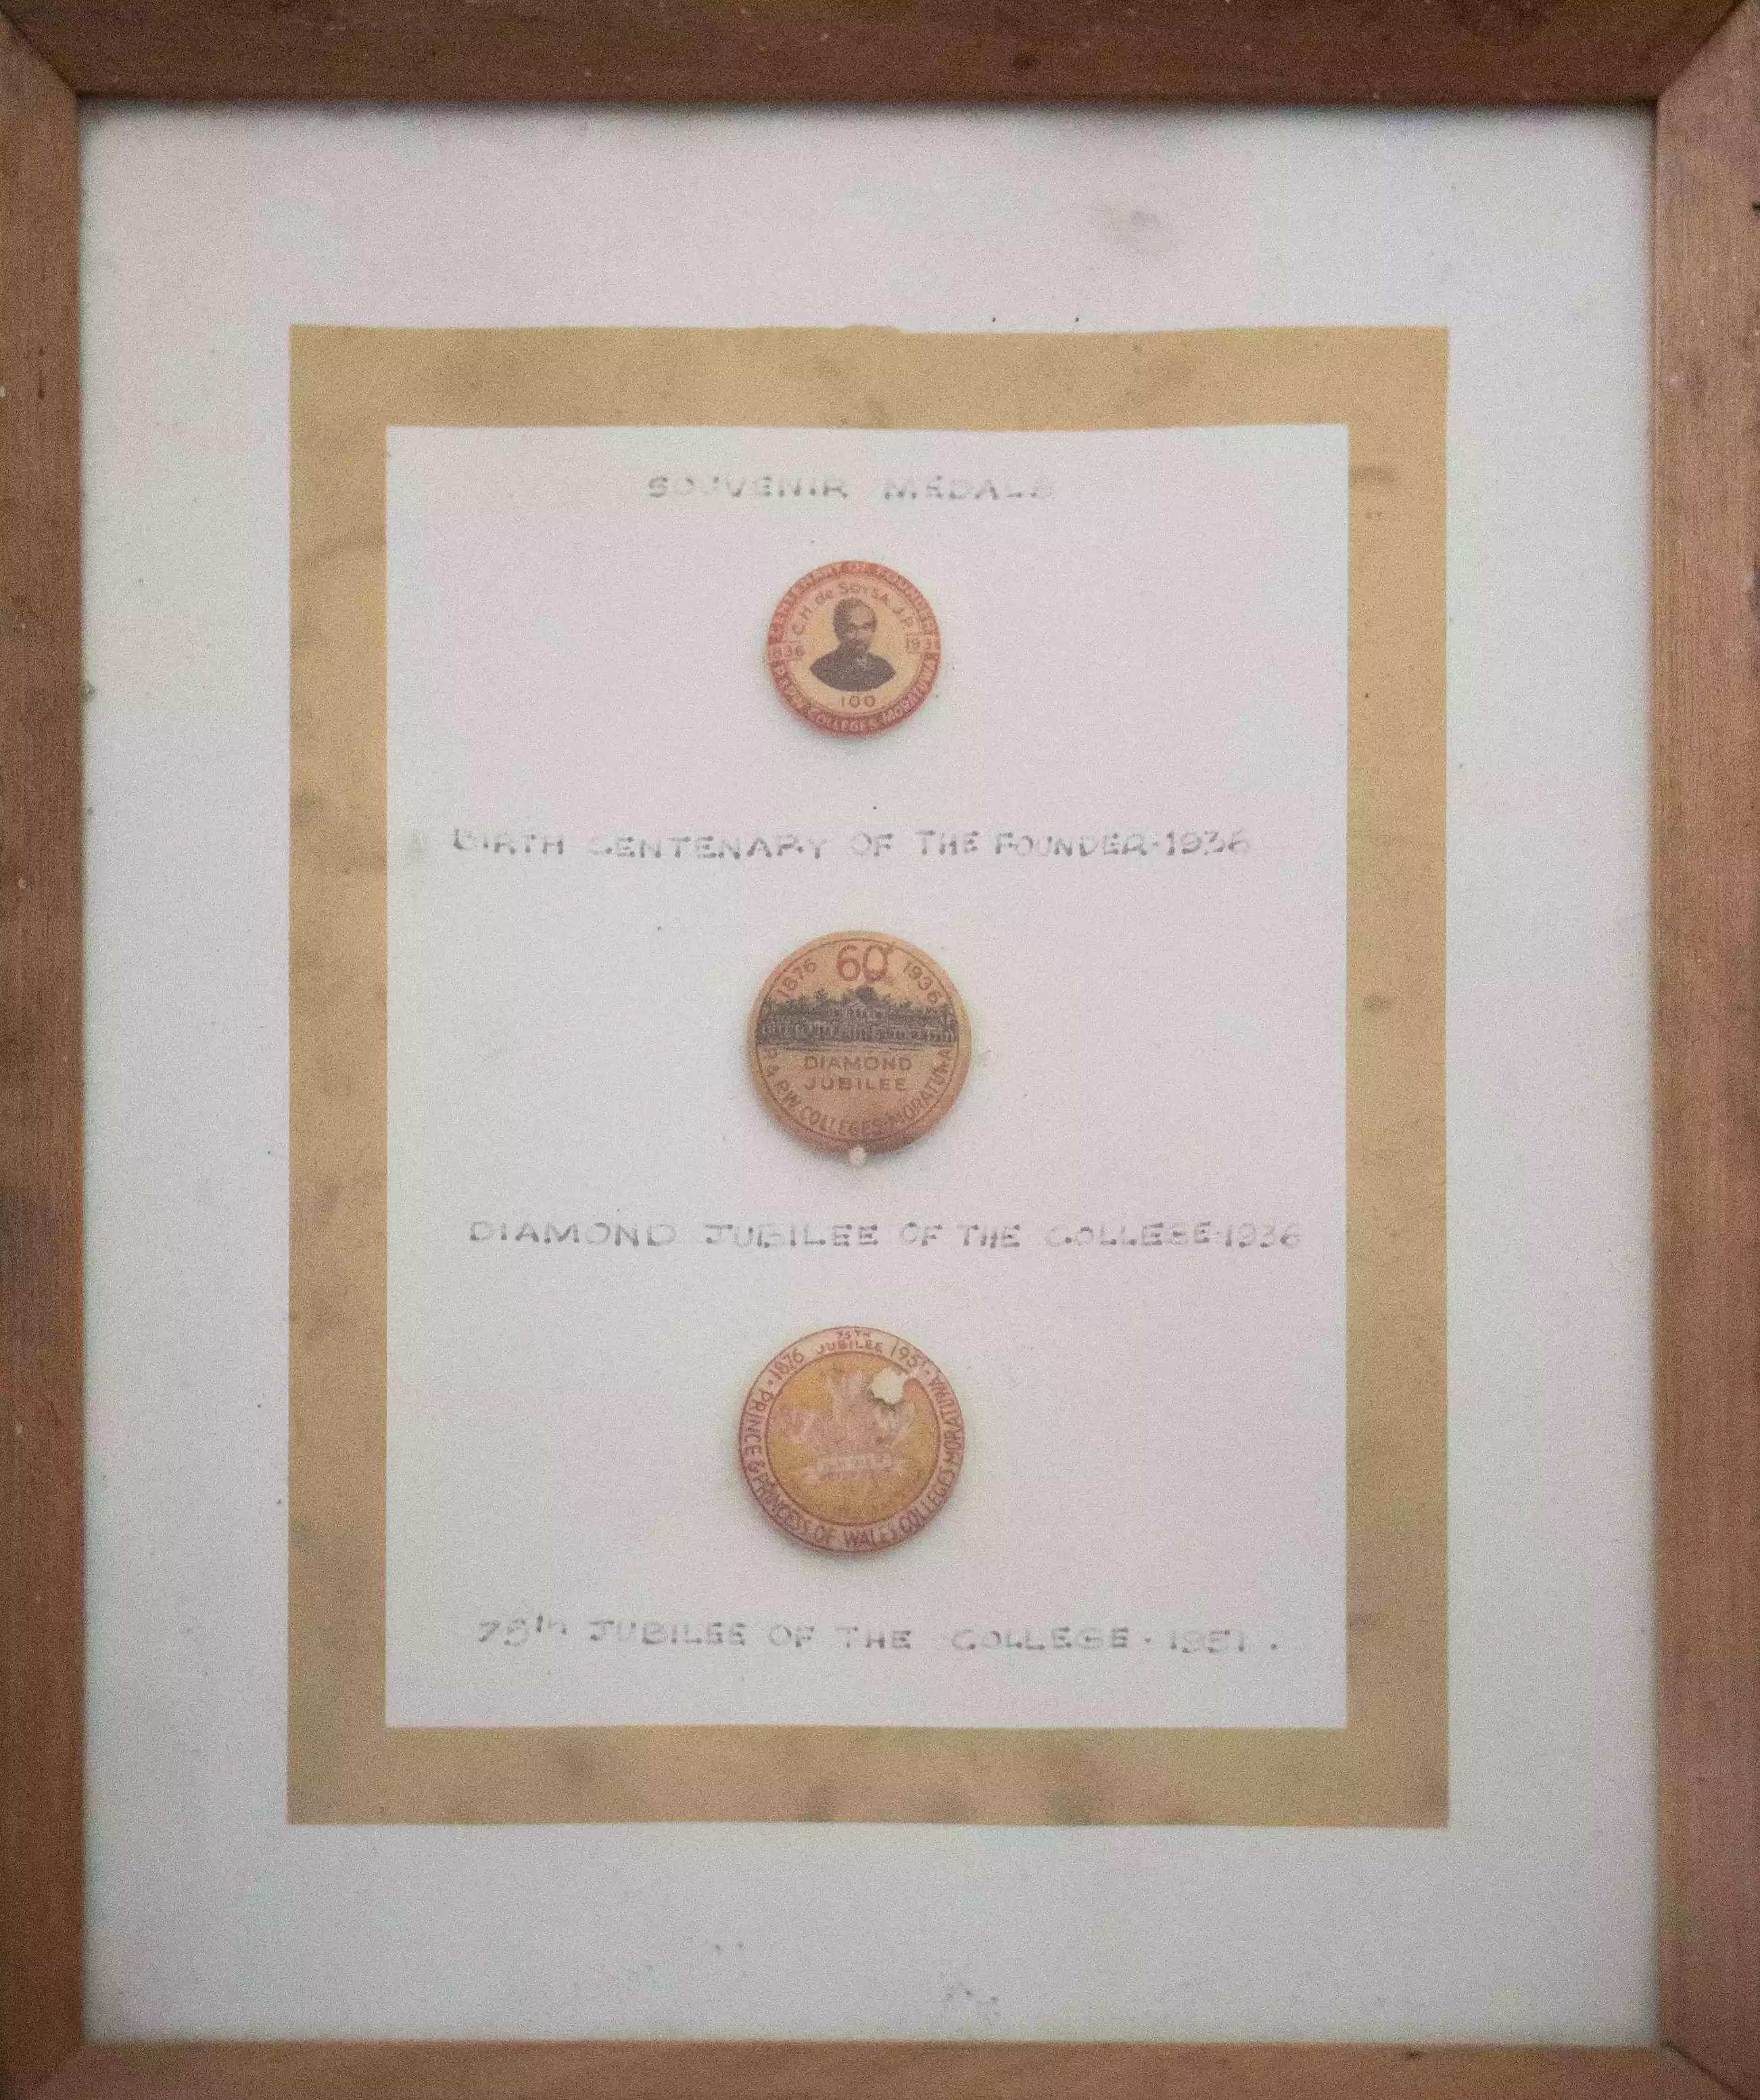 SOUVENIR MEDALS
CENTENARY OF FOUNDER
C.H. de SOYSA, J.P.
1836 193
100
P.& P.W. COLLEGES MORATUWA
BIRTH CENTENARY OF THE FOUNDER-1936
1876 60 1936
DIAMOND
JUBILEE
P. & P.W. COLLEGES-MORATUWA
DIAMOND JUBILEE OF THE COLLEGE-1936
75TH
1876 JUBILEE 1951
PRINCE & PRINCESS OF WALES COLLEGES MORATUWA
75th JUBILEE OF THE COLLEGE - 1951 .